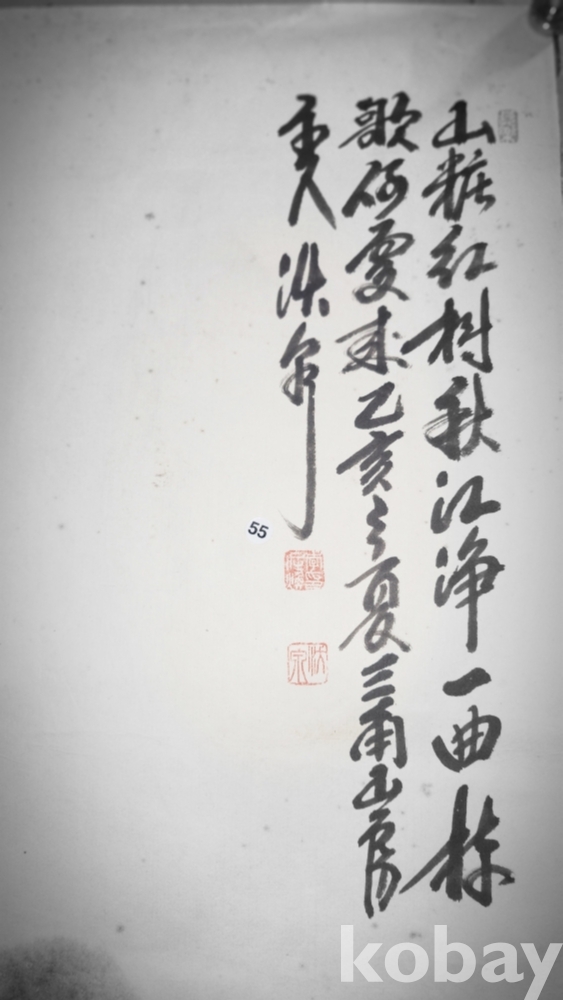 山粧紅樹秋江淨一曲
歌何處來乙亥之夏三山房
主人
55
kobay